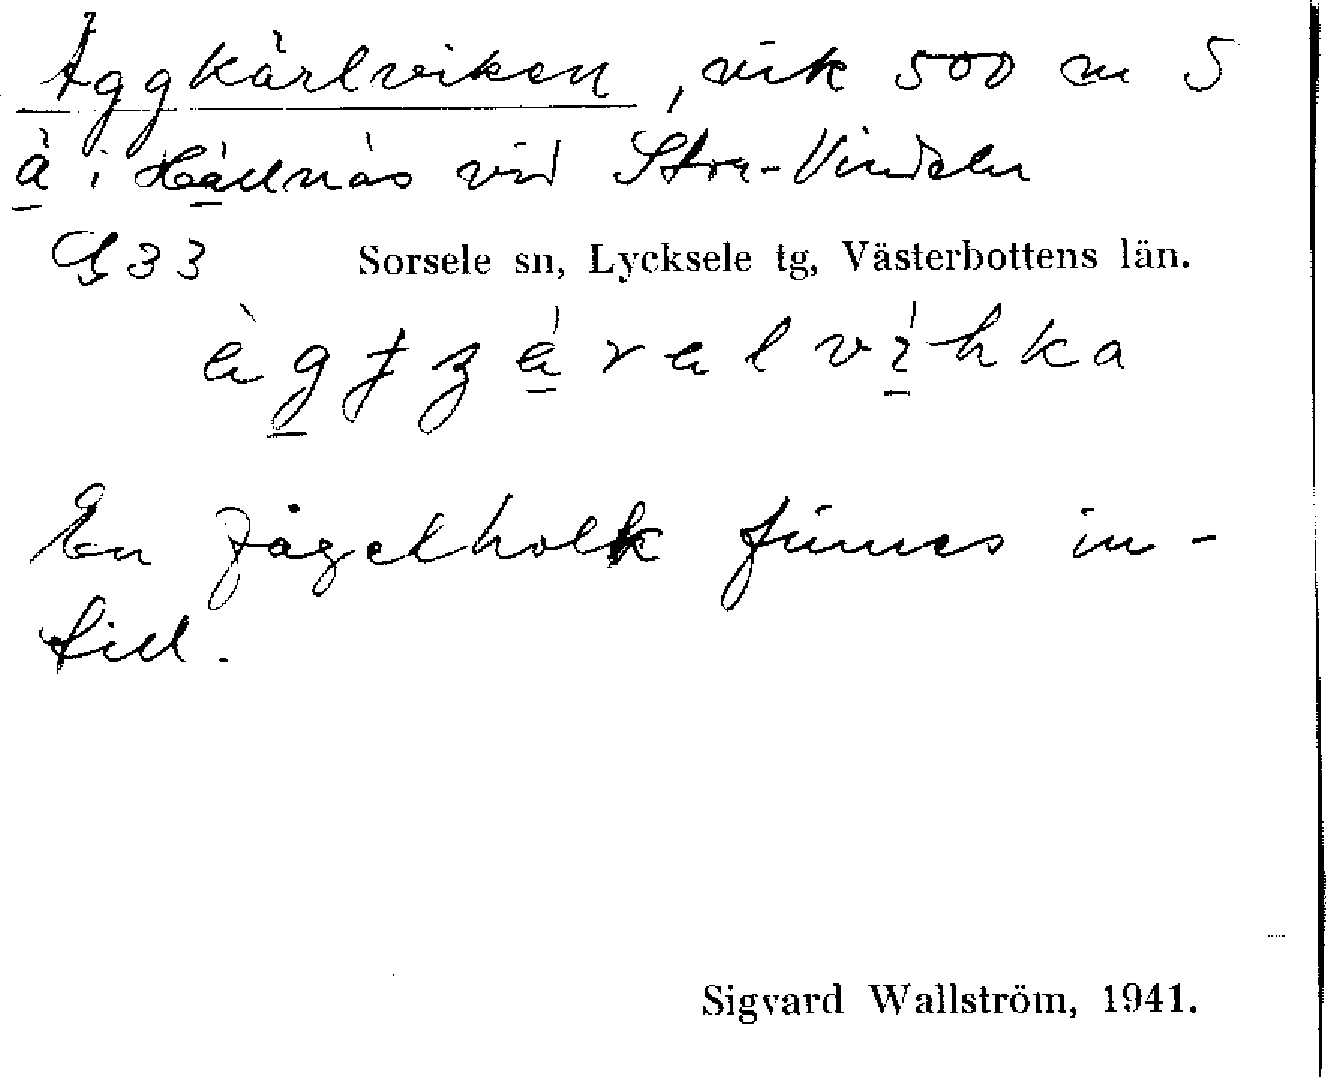 Äggkärlviken, vik 500 m S
ä i Hällnäs vid Stra-Vindeln
G 33 Sorsele sn, Lycksele tg, Västerbottens län.
En fågelholk finnes in-
till.
Sigvard Wallström, 1941.